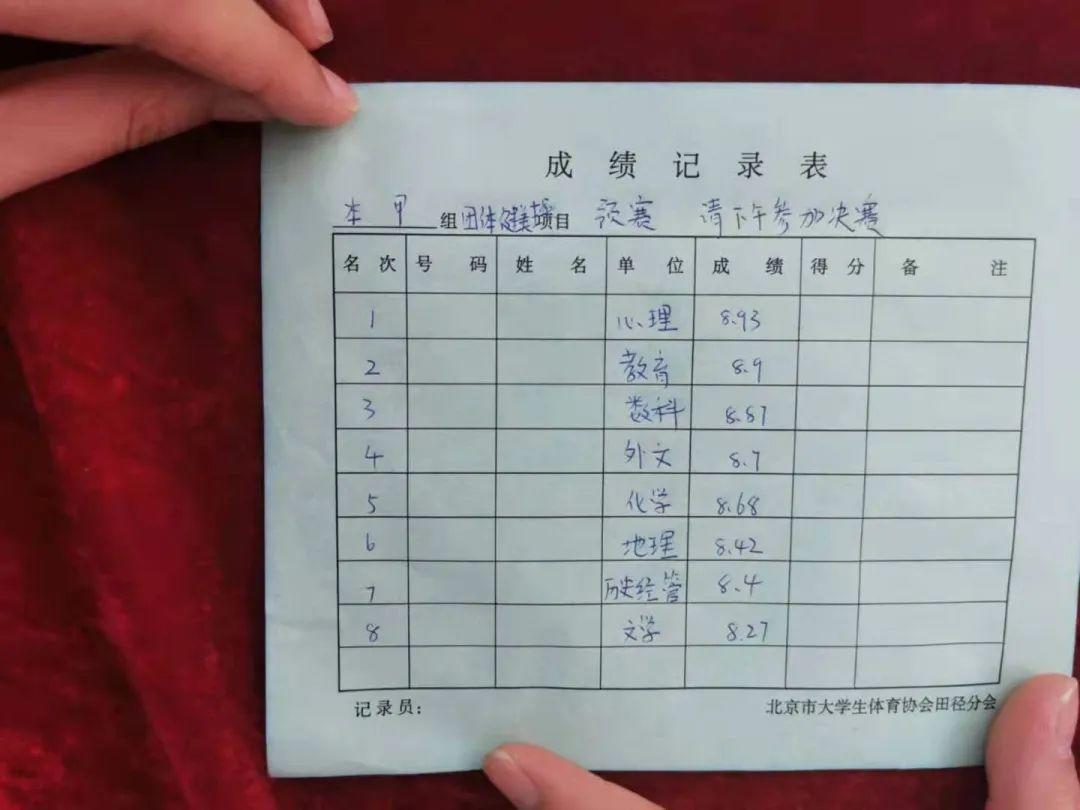 成绩记录表
本甲 组 团体健美操 项目 预赛 请下午参加决赛
名次 号码 姓名 单位 成绩 得分 备注
1 心理 8.93
2 教育 8.9
3 数科 8.87
4 外文 8.7
5 化学 8.68
6 地理 8.42
7 历史经管 8.4
8 文学 8.27
记录员: 北京市大学生体育协会田径分会